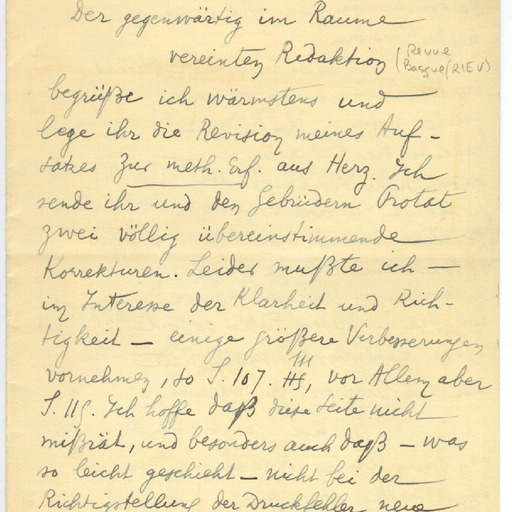 Der gegenwärtig im Raume
vereinten Redaktion (Revue
Basque/RIEV)
begrüße ich wärmstens und
lege ihr die Revision meines Auf-
satzes Zur meth. Erf. aus Herz. Ich
sende ihr und den Gebrüdern Protat
zwei völlig übereinstimmende
Korrekturen. Leider mußte ich —
im Interesse der Klarheit und Rich-
tigkeit — einige größere Verbesserungen
vornehmen, so S. 107. , vor Allem aber
S. 115. Ich hoffe daß diese Seite nicht
mißrät, und besonders auch daß — was
so leicht geschieht — nicht bei der
Richtigstellung der Druckfehler neue